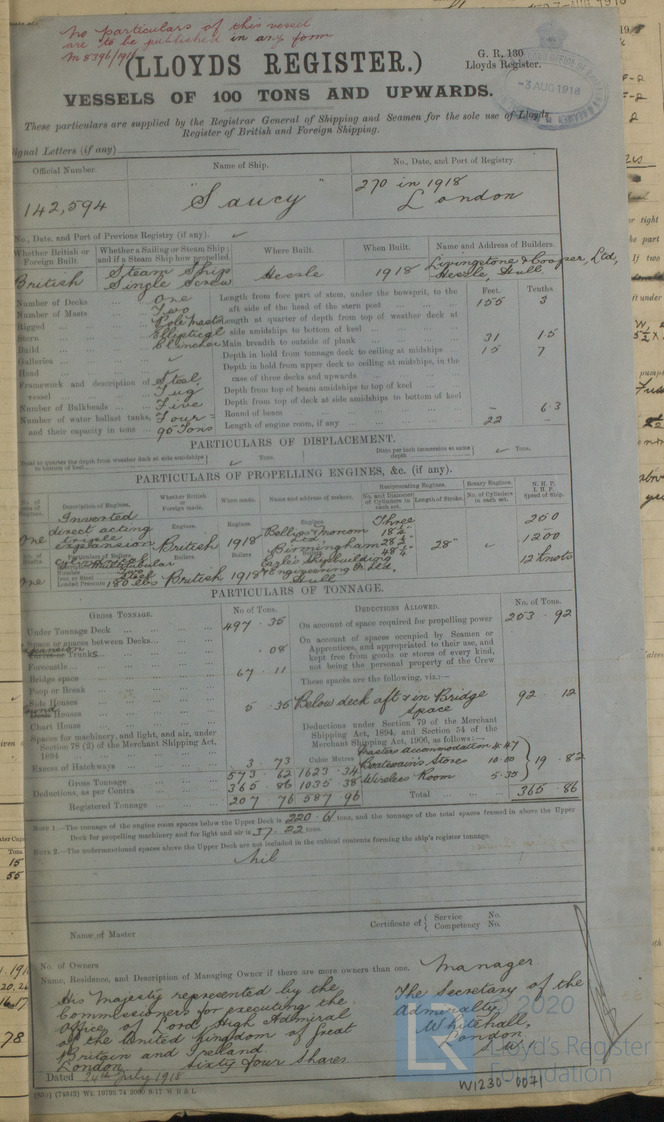 No particulars of this vessel
are to be published in any form
M 8396/1918
(LLOYDS REGISTER.)
G. R. 130
Lloyds Register.
-3 AUG 1918
VESSELS OF 100 TONS AND UPWARDS.
These particulars are supplied by the Registrar General of Shipping and Seamen for the sole use of Lloyds
Register of British and Foreign Shipping.
Signal Letters (if any)
Official Number Name of Ship. No., Date, and Port of Registry.
142,594 "Saucy" 270 in 1918
London
No., Date, and Port of Previous Registry (if any).
Whether British or Foreign Built. Whether a Sailing or Steam Ship; and if a Steam Ship how propelled. Where Built. When Built. Name and Address of Builders.
British Steam Ship Single Screw Hessle 1918 Livingstone & Cooper, Ltd, Hessle, Hull
Feet. Tenths.
Number of Decks ... One Length from fore part of stem, under the bowsprit, to the
aft side of the head of the stern post 155 3
Number of Masts ... Two
Rigged ... Pole Masts Length at quarter of depth from top of weather deck at
side amidships to bottom of keel
Stern ... Elliptical
Build ... Clencher Main breadth to outside of plank 31 15
Galleries ... Depth in hold from tonnage deck to ceiling at midships 15 7
Head ... Depth in hold from upper deck to ceiling at midships, in the
case of three decks and upwards
Framework and description of vessel ... Steel, Tug Depth from top of beam amidships to top of keel
Number of Bulkheads ... Five Depth from top of deck at side amidships to bottom of keel
Number of water ballast tanks, and their capacity in tons ... Four = 90 Tons Round of beam - 63
Length of engine room, if any 22 -
PARTICULARS OF DISPLACEMENT.
Total to quarter the depth from weather deck at side amidships to bottom of keel Tons. Ditto per inch immersion at same depth Tons.
PARTICULARS OF PROPELLING ENGINES, &c. (if any).
No. of sets of Engines. Description of Engines. Whether British or Foreign made. When made. Name and address of makers. Reciprocating Engines. No. and Diameter of Cylinders in each set. Length of Stroke. Rotary Engines. No. of Cylinders in each set. N.H.P. I.H.P. Speed of Ship.
One Inverted direct acting triple expansion Engines. British Engines. 1918 Engines. Three 18½" 28½" 48½" 28" 250
1200
12 knots
Birmingham
No. of Boilers Particulars of Boilers Boilers Boilers Boilers
One Multitubular Iron or Steel Steel Loaded Pressure 180 lbs British 1918 Eagle Shipbuilding & Engineering Co Ltd, Hull
PARTICULARS OF TONNAGE.
GROSS TONNAGE. No of Tons. DEDUCTIONS ALLOWED. No. of Tons.
Under Tonnage Deck 497 . 35 On account of space required for propelling power 253 . 92
Space or spaces between Decks On account of spaces occupied by Seamen or
Apprentices, and appropriated to their use, and
kept free from goods or stores of every kind,
not being the personal property of the Crew
Expansion Trunks . 08
Forecastle
Bridge space 67 . 11
Poop or Break These spaces are the following, viz.:—
Side Houses
Round Houses 5 . 35 Below deck aft & in Bridge space 92 . 12
Chart House
Spaces for machinery, and light, and air, under
Section 78 (2) of the Merchant Shipping Act,
1894
Deductions under Section 79 of the Merchant
Shipping Act, 1894, and Section 54 of the
Merchant Shipping Act, 1906, as follows:—
Excess of Hatchways . 3 . 73 Cubic Metres Masters Accommodation 4.47
Gross Tonnage 573 . 62 1623 . 34 Boatswain's Stores 10.00 19 . 82
Deductions, as per Contra 365 . 86 1035 . 38 Wireless Room 5.35
Registered Tonnage 207 76 587 96 Total 365 . 86
NOTE 1.—The tonnage of the engine room spaces below the Upper Deck is 220.6 tons, and the tonnage of the total spaces framed in above the Upper
Deck for propelling machinery and for light and air is 37.22 tons.
NOTE 2.—The undermentioned spaces above the Upper Deck are not included in the cubical contents forming the ship's register tonnage.
Nil
Name of Master Certificate of { Service No. Competency No.
No. of Owners
Name, Residence, and Description of Managing Owner if there are more owners than one.
His Majesty represented by the
Commissioners for executing the
Office of Lord High Admiral
of the United Kingdom of Great
Britain and Ireland
London Sixty four Shares.
Manager
The Secretary of the
Admiralty,
Whitehall,
London
S.W.1
Dated 24th July 1918
LR © 2020
Lloyd's Register
Foundation
W1230-0071